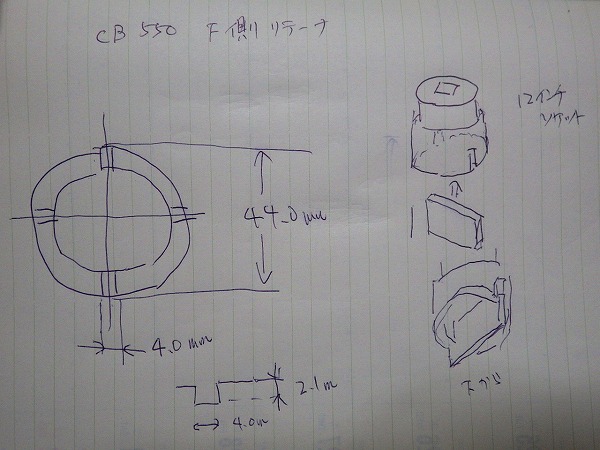 CB 550 下側リテーナ
12インチ
ソケット
44.0mm
4.0mm
2.1m
4.0m